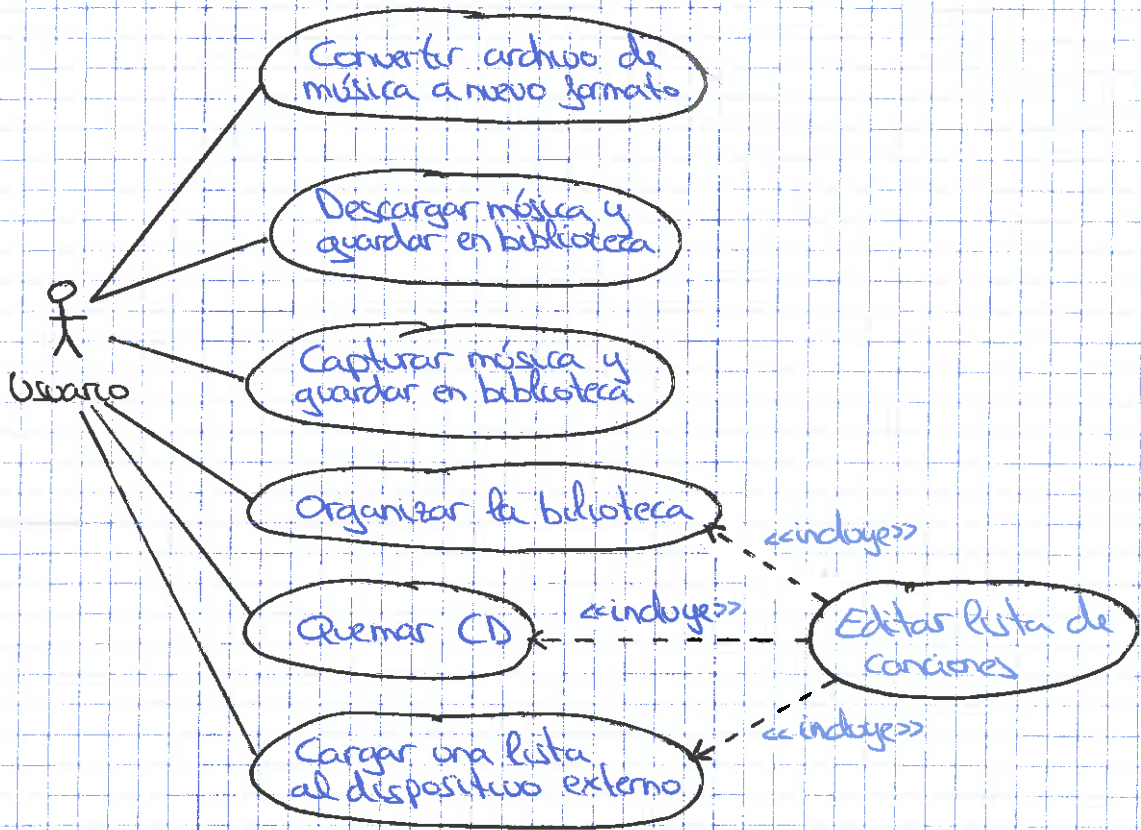 Convertir archivo de
música a nuevo formato
Descargar música y
guardar en biblioteca
Usuario
Capturar música y
guardar en biblioteca
Organizar la bilioteca
<<incluye>>
Quemar CD
<<incluye>>
Editar lista de
canciones
<<incluye>>
Cargar una lista
al dispositivo externo